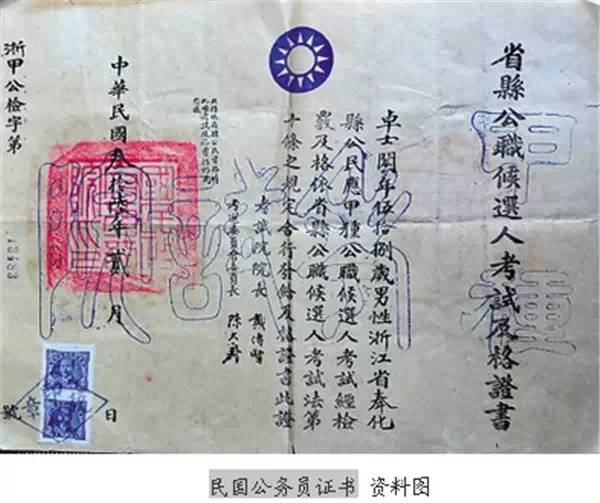 省縣公職候選人考試及格證書
卓士闓年伍拾捌歲男性浙江省奉化
縣公民應甲種公職候選人考試經檢
覈及格依省縣公職候選人考試法第
十條之規定合行發給及格證書此證
考試院院長 戴傳賢
考選委員會委員長 陳大齊
中華民國叁拾柒年貳月 日
浙甲公檢字第
號
章
甲種
民国公务员证书 资料图